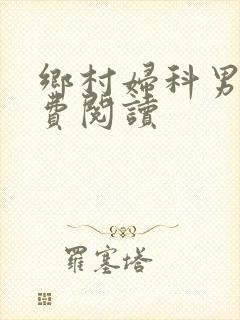 鄉村婦科男
費閱讀
羅塞塔